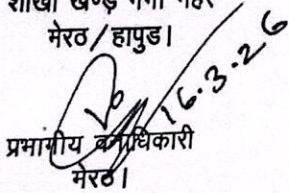 शाखा खण्ड गंगा नहर
मेरठ/हापुड।
16.3.26
प्रभागीय वनाधिकारी
मेरठ।